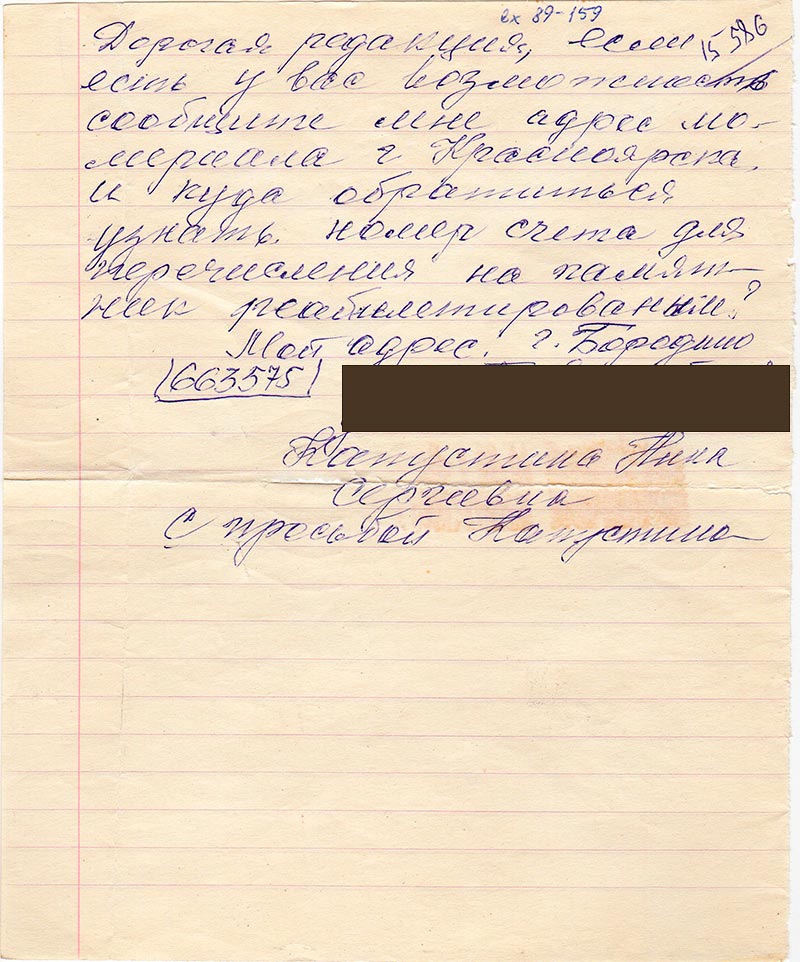 вх 89-159
15 586
Дорогая редакция, если
есть у вас возможность
сообщите мне адрес мо-
мериала г Красноярска,
и куда обратиться
узнать номер счета для
перечисления на памят-
ник реабилитированным?
Мой адрес. г. Бородино
(663575)
Капустина Нина
Сергеевна
С просьбой Капустина